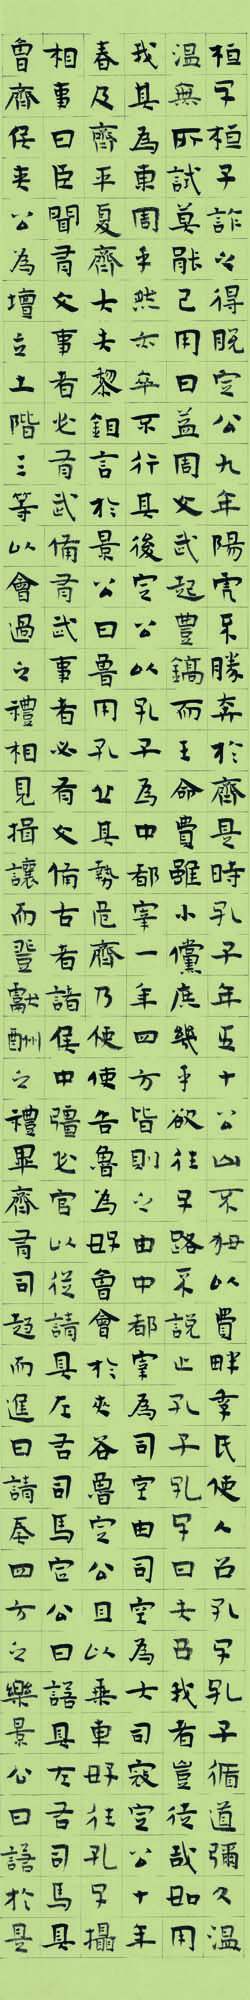 桓子桓子詐之得脫定公九年陽虎不勝奔於齊是時孔子年五十公山不狃以費畔季氏使人召孔子孔子循道彌久溫
溫無所試莫能己用曰蓋周文武起豐鎬而王今費雖小儻庶幾乎欲往子路不說止孔子孔子曰夫召我者豈徒哉如用
我其為東周乎然亦卒不行其後定公以孔子為中都宰一年四方皆則之由中都宰為司空由司空為大司寇定公十年
春及齊平夏齊大夫黎鉏言於景公曰魯用孔丘其勢危齊乃使使告魯為好會會於夾谷魯定公且以乘車好往孔子攝
相事曰臣聞有文事者必有武備有武事者必有文備古者諸侯出疆必官以從請具左右司馬定公曰諾具左右司馬具
會齊侯夾谷為壇立土階三等以會遇之禮相見揖讓而登獻酬之禮畢齊有司趨而進曰請奏四方之樂景公曰諾於是